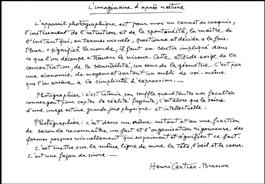 L'imaginaire d'après nature
L'appareil photographique est pour moi un carnet de croquis,
l'instrument de l'intuition et de la spontanéité, le maître de
l'instant qui, en termes visuels, questionne et décide à la fois.
Pour "signifier" le monde, il faut se sentir impliqué dans
ce que l'on découpe à travers le viseur. Cette attitude exige de la
concentration, de la sensibilité, un sens de la géométrie. C'est par
une économie de moyens et surtout un oubli de soi-même
que l'on arrive à la simplicité d'expression.
Photographier: c'est retenir son souffle quand toutes nos facultés
convergent pour capter la réalité fugitive; c'est alors que la saisie
d'une image est une grande joie physique et intellectuelle.
Photographier: c'est dans un même instant et en une fraction
de seconde reconnaître un fait et l'organisation rigoureuse des
formes perçues visuellement qui expriment et signifient ce fait.
C'est mettre sur la même ligne de mire la tête, l'œil et le cœur.
C'est une façon de vivre.
Henri Cartier-Bresson